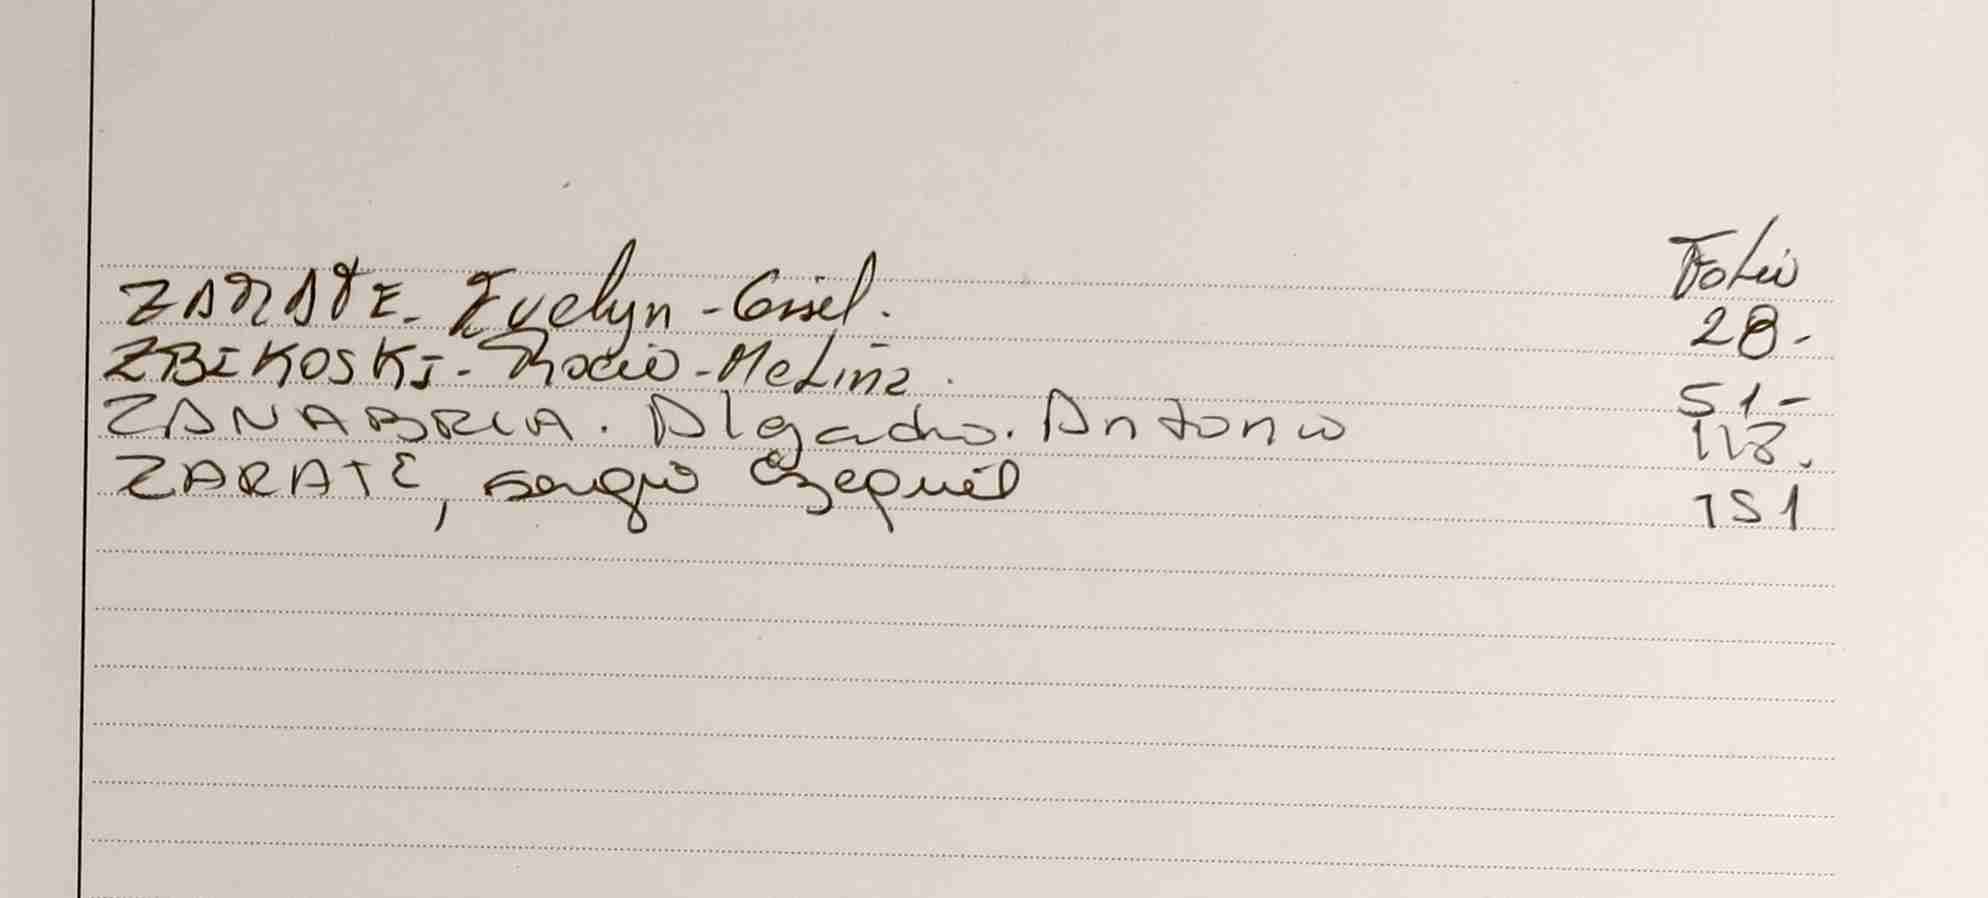 Folio
ZARATE. Evelyn - Gisel. 28-
ZBIKOSKI - Rocio - Melina. 51-
ZANABRIA. Antonio 118.
ZARATE, sergio Ezequiel 151